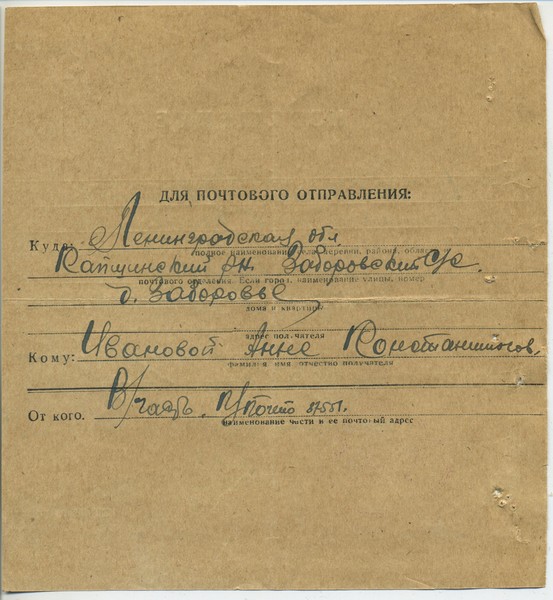 ДЛЯ ПОЧТОВОГО ОТПРАВЛЕНИЯ:
Куда: Ленинградская обл
полное наименование деревни, района, области
Капшинский рн. Заборовский с/с.
почтового отделения. Если город, наименование улицы, номер
д. Заборовье
дома и квартиры
адрес получателя
Кому: Ивановой Анне Константинов.
фамилия имя отчество получателя
От кого. В/часть. П/Почта
наименование части и ее почтовый адрес